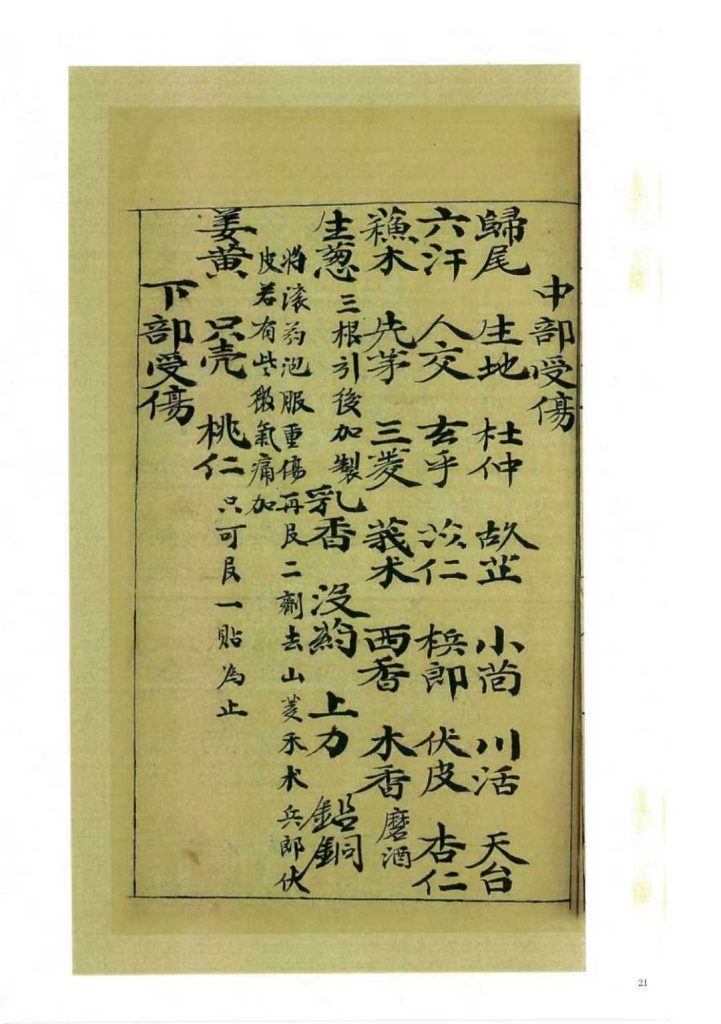 中部受傷
歸尾 生地 杜仲 故芷 小茴 川活 天台
六汗 人交 玄乎 苡仁 梹郎 伏皮 杏仁
蘓木 先茅 三菱 莪术 西香 木香磨酒
生葱三根引後加製乳香 没药 上力 鉛銅
将滚药泡服重傷再艮二劑去山菱禾术兵郎伏
皮若有些微氣痛加
姜黄 只壳 桃仁只可艮一贴為止
下部受傷
21